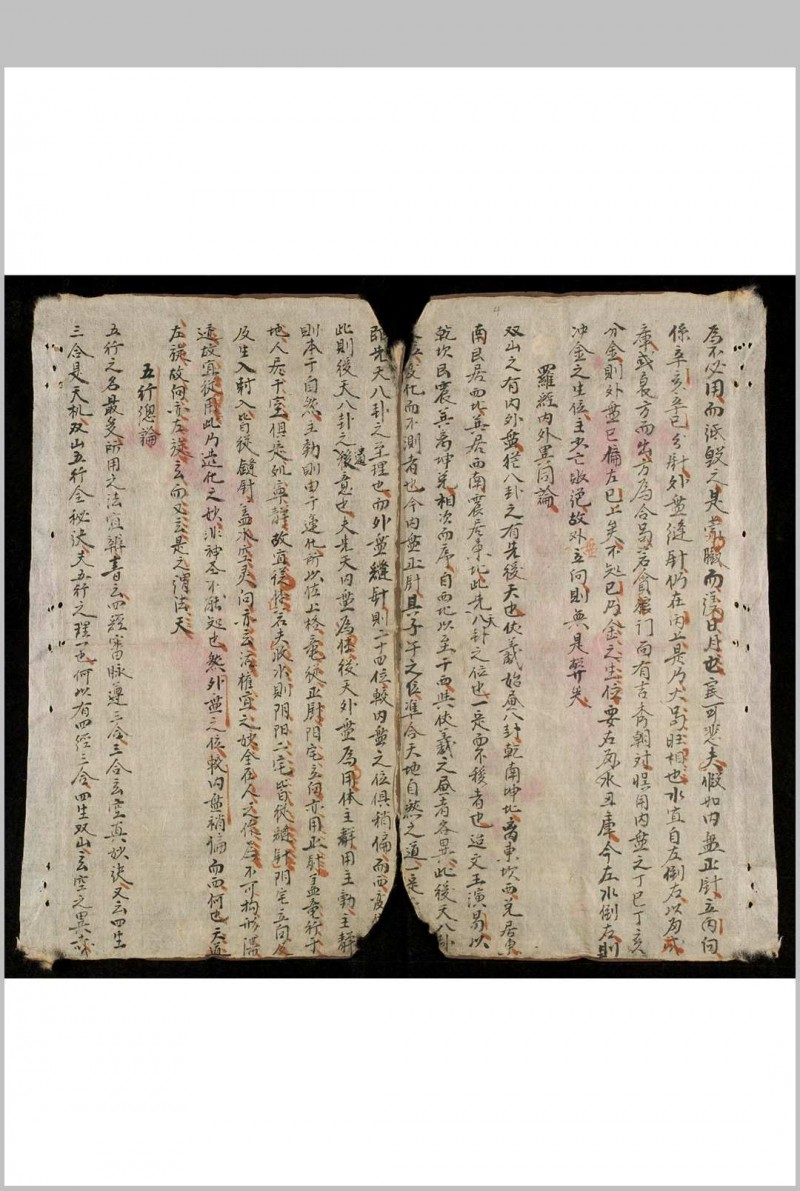 為不必用而詆毀之是蒙瞍而謗日月也哀可悲夫假如內盘正針立丙向
係辛亥辛巳分針外盘縫針仍在丙上是乃火局旺相也水宜自左倒右以局成
庫或艮方而为合局若貪龍门面有吉秀朝对悞用內盘之丁巳丁亥
分金則外盘已偏左巳上矣不知巳乃金之生位要右局水丑庫今左水倒右則
冲金之生位主少亡敗絕故外立向則無是弊矣
羅經內外異同論
双山之有內外盘猶八卦之有先後天也伏羲始画八卦乾南坤北离東坎西兑居東
南艮居西北巽居西南震居東北此先天八卦之位也一是而不移者也迨文王演易以
乾坎艮震巽离坤兑相次而序自西北以至于西與伏羲之画者各異此後天八卦
变化而不測者也今內盘正針其子午之位準合天地自然之道一定
即先天八卦之至理也而外盘縫針則二十四位較內盘之位俱稍偏而西
此則後天八卦之遺意也夫先天內盘為体後天外盘為用体主靜用主動主靜
則本于自然主動則由于運化所以位上格龍從正針阳宅立向亦用正針盖龍行于
地人居于室俱是死寧靜故宜從之若夫收水則阴阳二宅皆從縫針阴宅立向
反生入剋入皆從縫針盖水空灵向亦云活權宜之妙全在人之作為不可拘形滯
迹故宜從用此乃造化之妙非神圣不能知也然外盘之位較內盘稍偏而西何也天道
左旋故向亦左旋云而又云是之謂法天
五行總論
五行之名最多所用之法宜辨書云四經審脉遵三合三合玄空真妙訣又云四生
三合是天机双山五行全秘訣夫五行之理一也何以有四經三合四生双山玄空之異